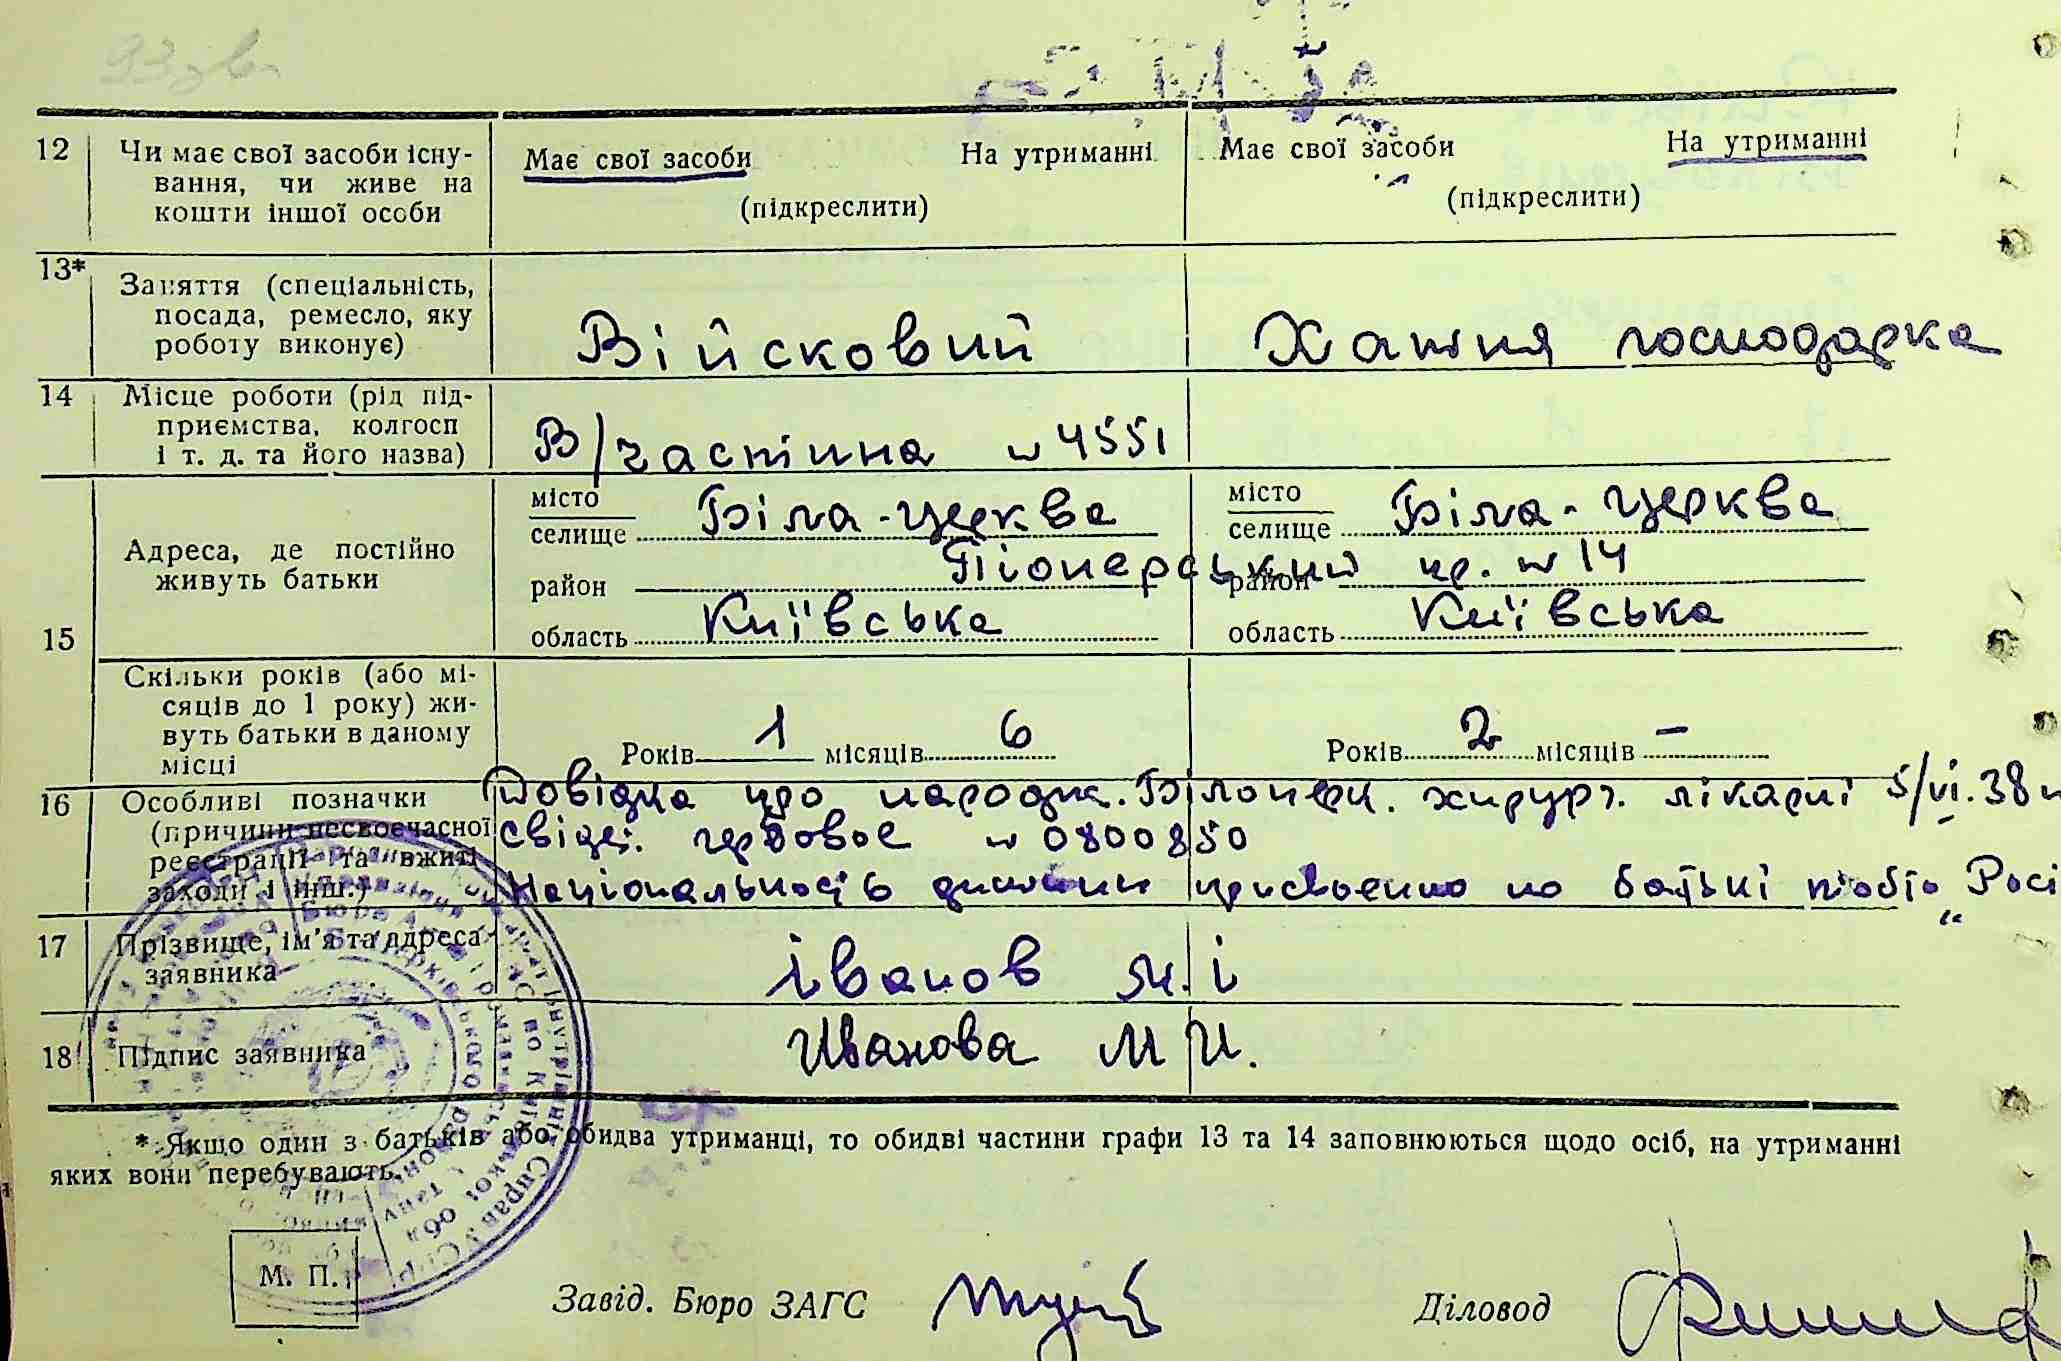 12 Чи має свої засоби існу-
вання, чи живе на
кошти іншої особи
Має свої засоби На утриманні
(підкреслити)
Має свої засоби На утриманні
(підкреслити)
13* Заняття (спеціальність,
посада, ремесло, яку
роботу виконує)
Війсковий
Хатня господарка
14 Місце роботи (рід під-
приємства, колгосп
і т. д. та його назва)
В/частіина № 4551
15 Адреса, де постійно
живуть батьки
місто
селище Біла-церква
район Піонерський пр. № 14
область Київська
місто
селище Біла-церква
район
область Київська
Скільки років (або мі-
сяців до 1 року) жи-
вуть батьки в даному
місці
Років 1 місяців 6
Років 2 місяців –
16 Особливі позначки
(причини несвоєчасної
реєстрації та вжиті
заходи і інш.)
Довідка про народж. Білоцерк. хирург. лікарні 5/VI.38
свідеі. № 0800850
Національность дитини присвоенно по батькі тобто „Росі
17 Прізвище, ім'я та адреса
заявника
Іванов М. І
18 Підпис заявника
Иванова М И.
* Якщо один з батьків або обидва утриманці, то обидві частини графи 13 та 14 заповнюються щодо осіб, на утриманні
яких вони перебувають.
М. П.
Завід. Бюро ЗАГС
Діловод